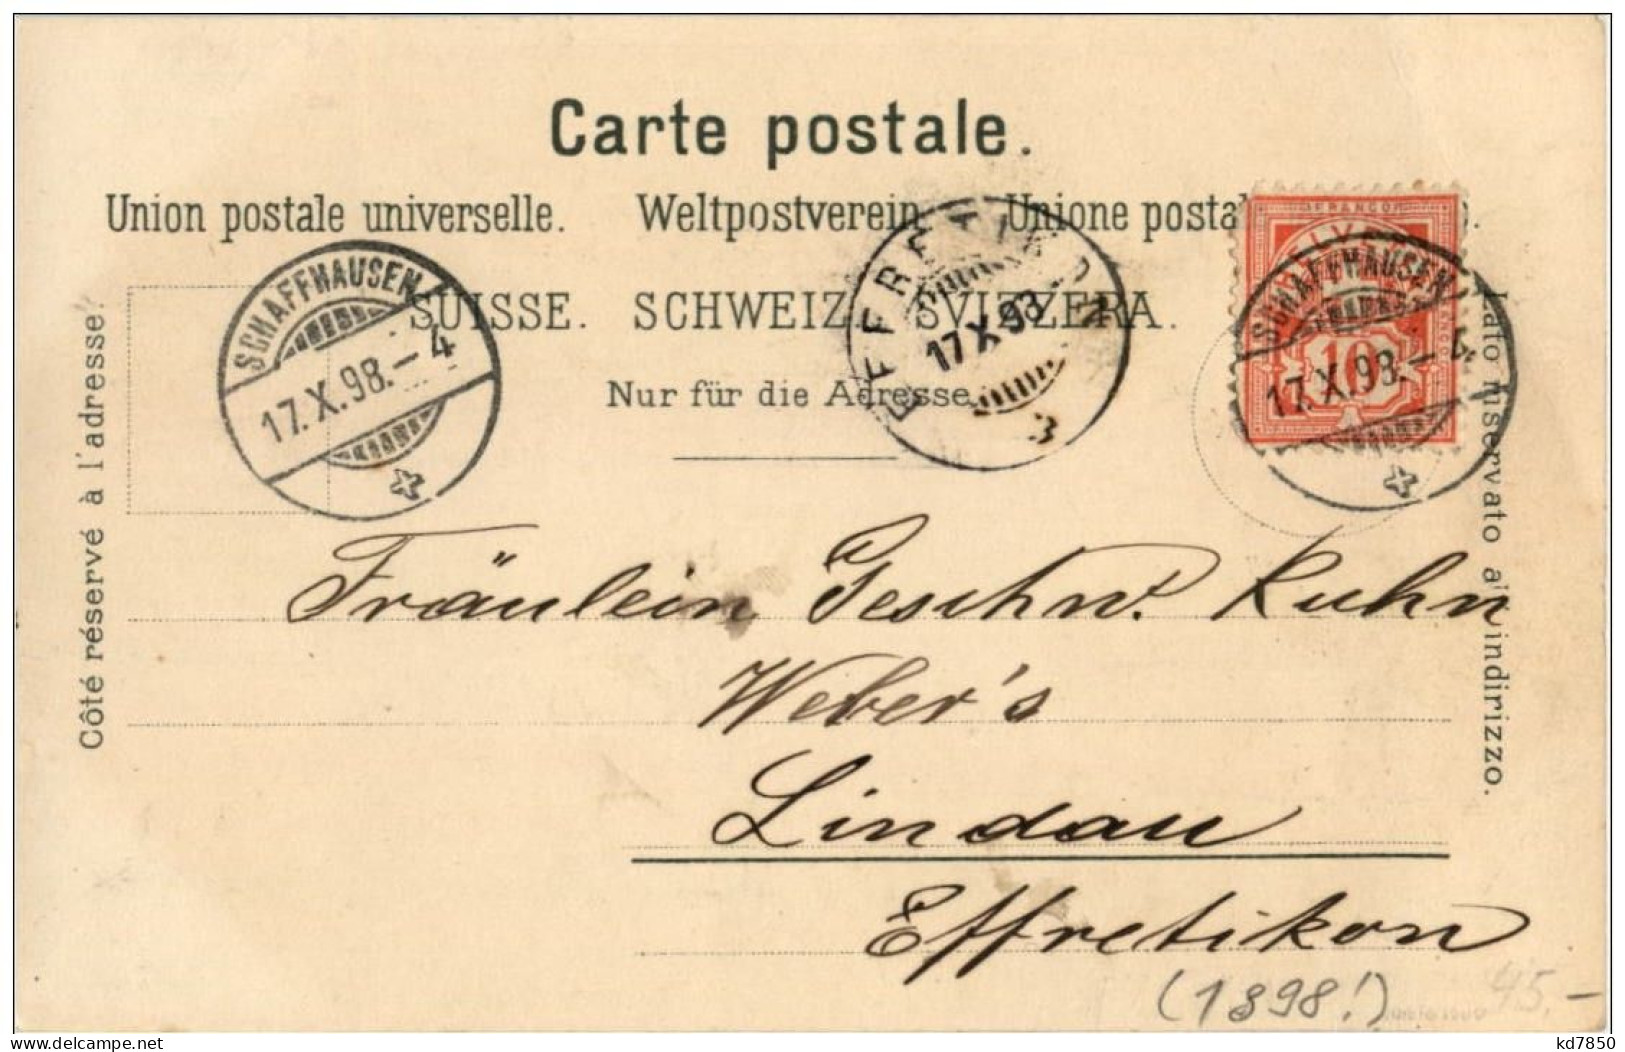 Carte postale.
Union postale universelle. Weltpostverein. Unione posta
SUISSE. SCHWEIZ. SVIZZERA.
Nur für die Adresse.
Côté réservé à l'adresse.
Lato riservato all'indirizzo.
SCHAFFHAUSEN
17.X.98.–4
EFFRETIKON
17 X 98
3
FRANCO
10
SCHAFFHAUSEN
17.X.98.–4
Fräulein Geschw. Kuhn
Weber's
Lindau
Effretikon
(1898!)
45.–
kd7850